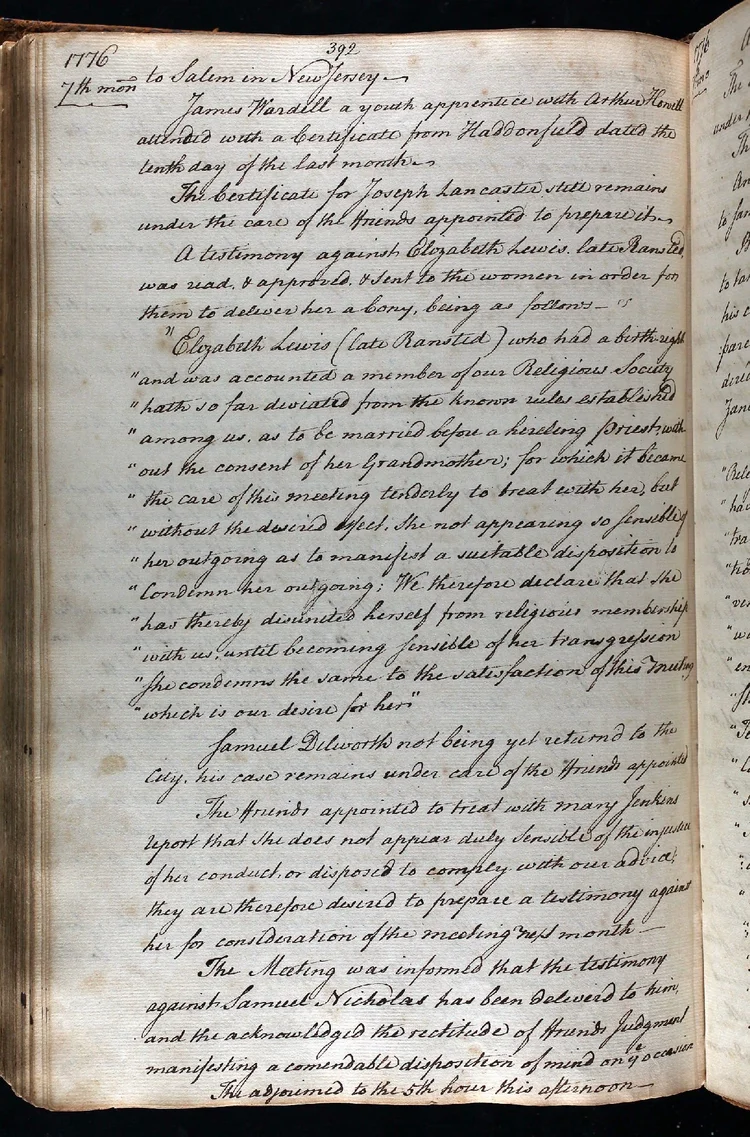 392
1776
7th mon to Salem in New Jersey
James Wardell a youth apprentice with Arthur Howell
attended with a Certificate from Haddonfield dated the
tenth day of the last month
The Certificate for Joseph Lancaster still remains
under the care of the Friends appointed to prepare it
A testimony against Elizabeth Lewis. late Ransted,
was read. & approved. & sent to the women in order for
them to deliver her a Copy, being as follows
"Elizabeth Lewis (late Ransted) who had a birth-right
"and was accounted a member of our Religious Society
"hath so far deviated from the known rules established
"among us, as to be married before a hireling Priest, with
"out the consent of her Grandmother; for which it became
"the care of this meeting tenderly to treat with her, but
"without the desired effect, she not appearing so sensible of
"her outgoing as to manifest a suitable disposition to
"Condemn her outgoing; We therefore declare that she
"has thereby disunited herself from religious membership
"with us, until becoming sensible of her transgression
"She condemns the same to the satisfaction of this meeting
"which is our desire for her"
Samuel Dilworth not being yet returnd to the
City, his case remains under care of the Friends appointed
The Friends appointed to treat with Mary Jenkins
report that she does not appear duly sensible of the injustice
of her conduct, or disposed to comply with our advice,
they are therefore desired to prepare a testimony against
her for consideration of the meeting next month
The Meeting was informed that the testimony
against Samuel Nicholas has been deliverd to him,
and the acknowledged the rectitude of Friends Judgment
manifesting a comendable disposition of mind on ye occasion
The adjourned to the 5th hour this afternoon